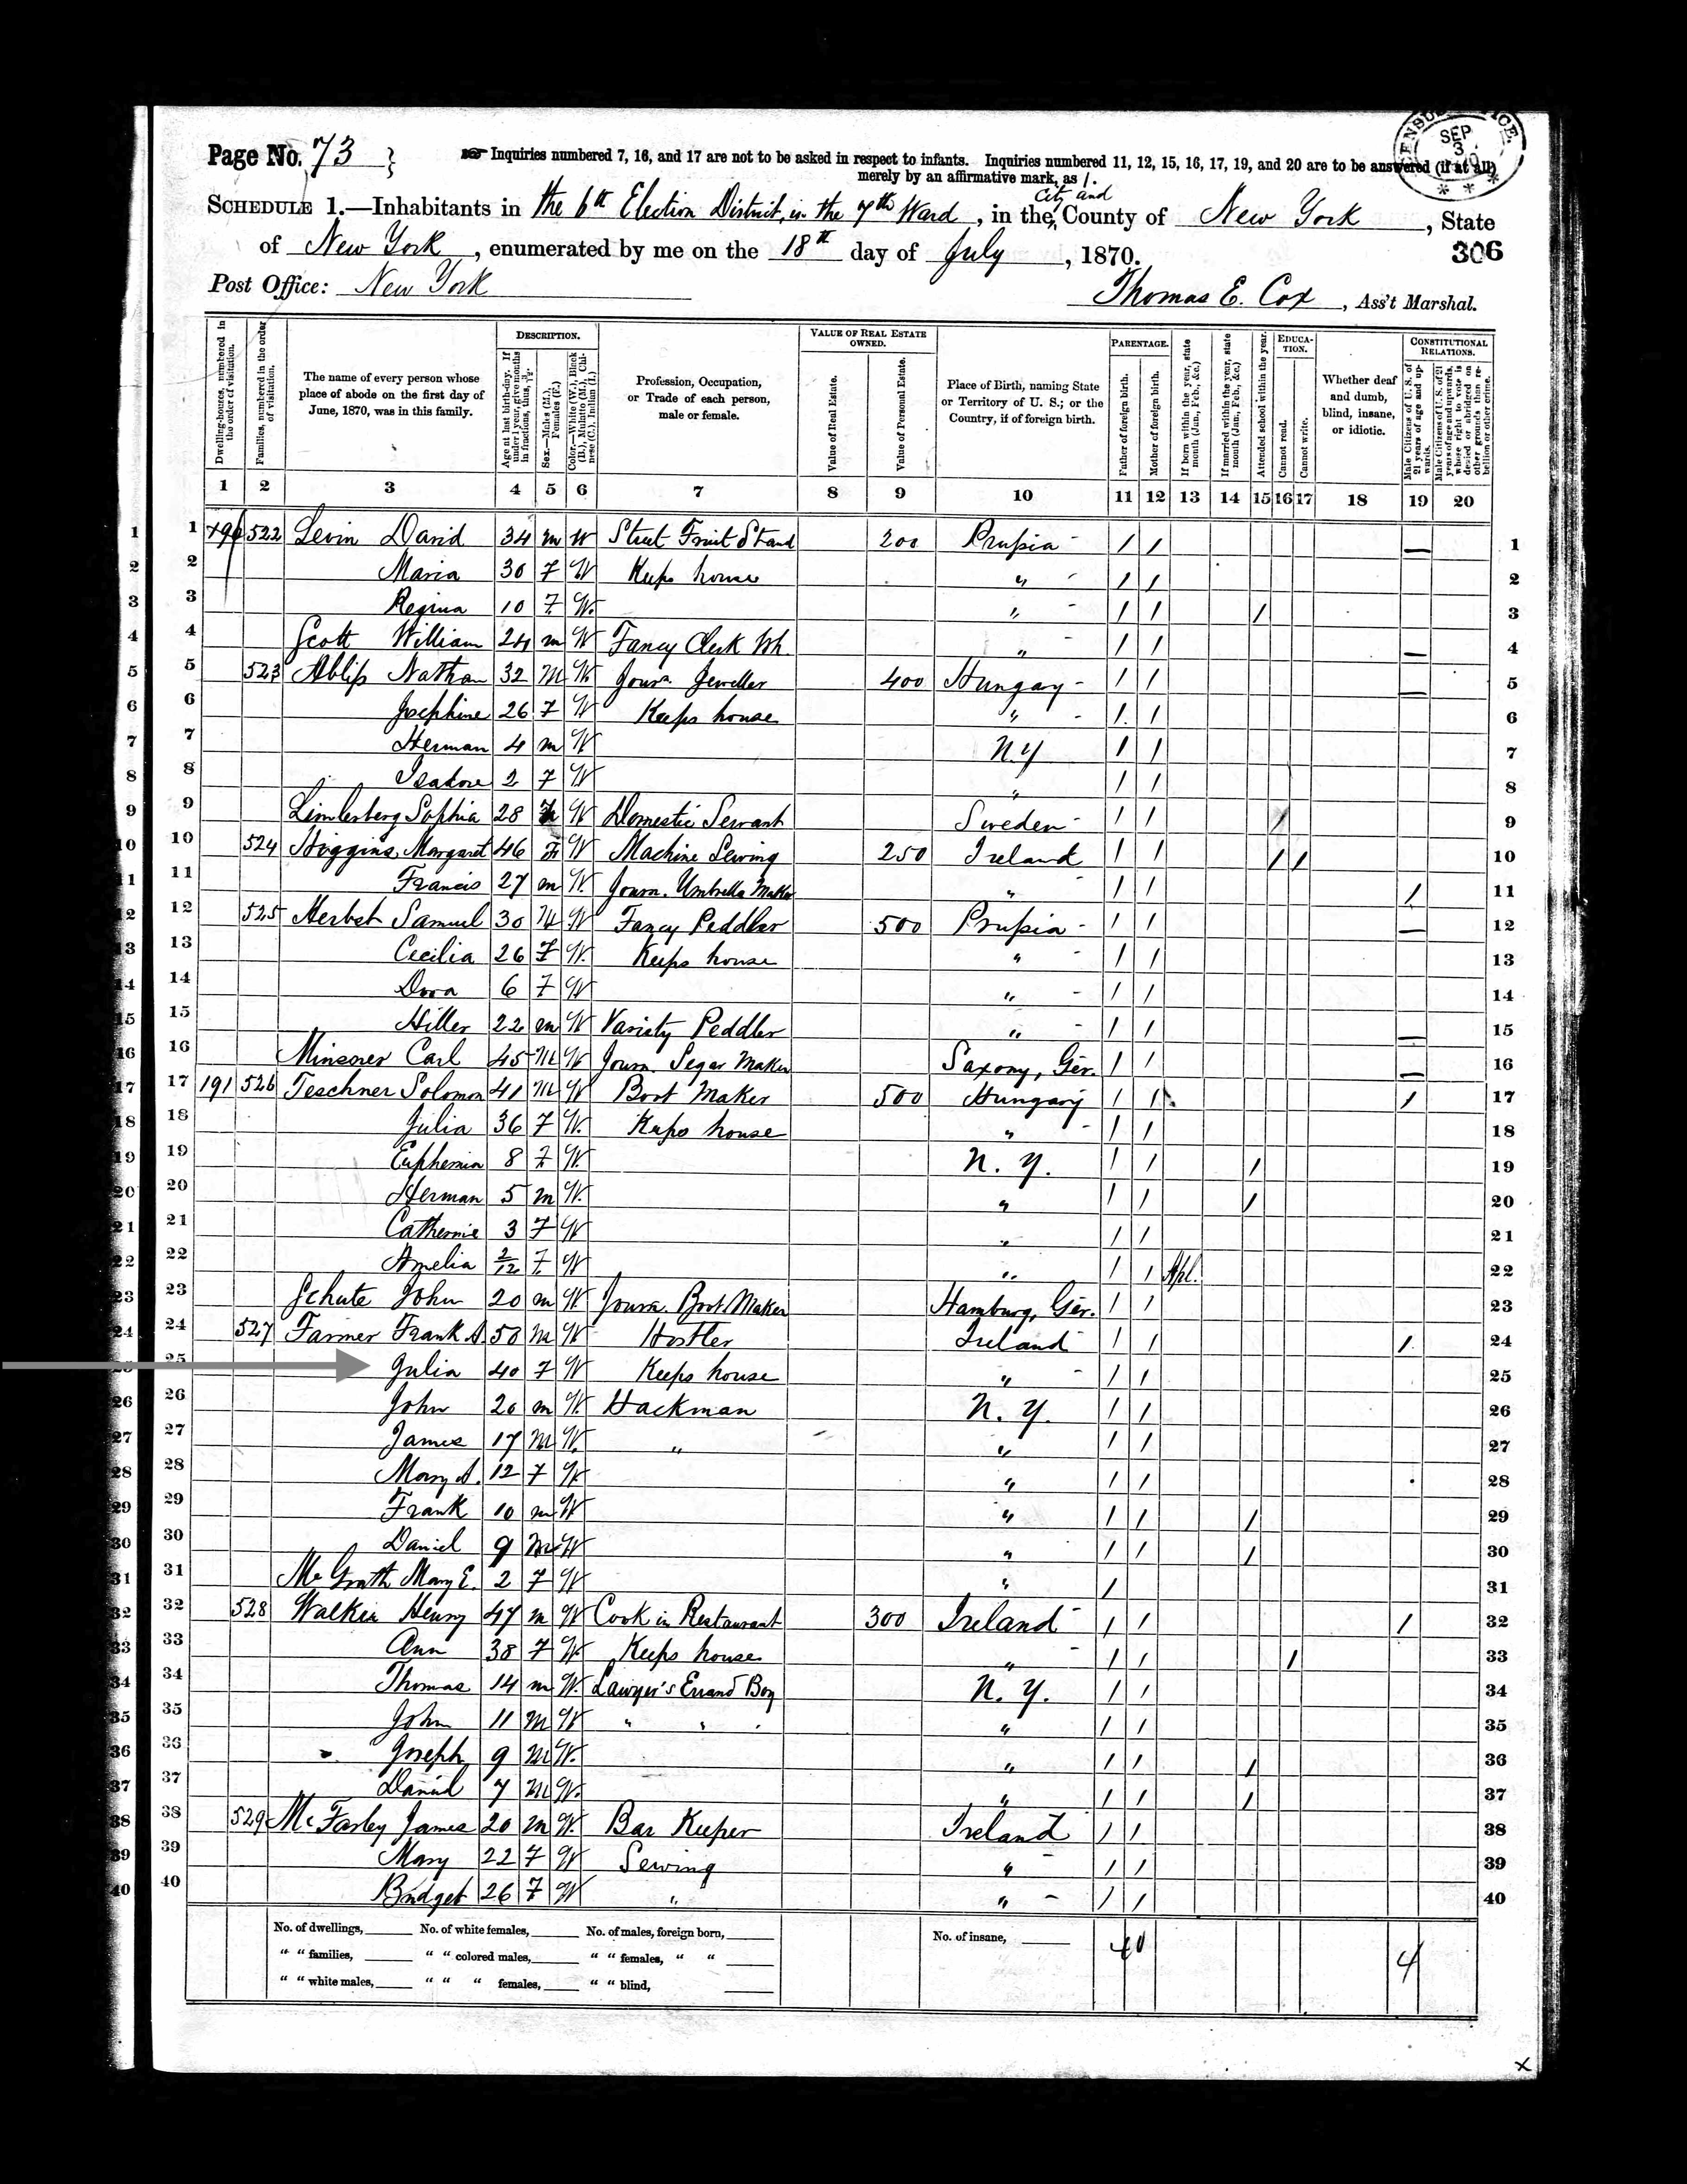 Page No. 73
Inquiries numbered 7, 16, and 17 are not to be asked in respect to infants. Inquiries numbered 11, 12, 15, 16, 17, 19, and 20 are to be answered (if at all)
merely by an affirmative mark, as /.
SEP 3
* * *
SCHEDULE 1.—Inhabitants in the 6th Election District, in the 7th Ward, in the City and County of New York, State
of New York, enumerated by me on the 18th day of July, 1870.
306
Post Office: New York
Thomas E. Cox, Ass't Marshal.
Dwelling-houses, numbered in the order of visitation.
Families, numbered in the order of visitation.
The name of every person whose place of abode on the first day of June, 1870, was in this family.
DESCRIPTION.
Age at last birth-day. If under 1 year, give months in fractions, thus, 3/12.
Sex.—Males (M.), Females (F.)
Color.—White (W.), Black (B.), Mulatto (M.), Chinese (C.), Indian (I.)
Profession, Occupation, or Trade of each person, male or female.
VALUE OF REAL ESTATE OWNED.
Value of Real Estate.
Value of Personal Estate.
Place of Birth, naming State or Territory of U. S.; or the Country, if of foreign birth.
PARENTAGE.
Father of foreign birth.
Mother of foreign birth.
If born within the year, state month (Jan., Feb., &c.)
If married within the year, state month (Jan., Feb., &c.)
Attended school within the year.
EDUCATION.
Cannot read.
Cannot write.
Whether deaf and dumb, blind, insane, or idiotic.
CONSTITUTIONAL RELATIONS.
Male Citizens of U. S. of 21 years of age and upwards.
Male Citizens of U. S. of 21 years of age and upwards, whose right to vote is denied or abridged on other grounds than rebellion or other crime.
1 2 3 4 5 6 7 8 9 10 11 12 13 14 15 16 17 18 19 20
1 1 522 Levin David 34 m W Street Fruit Stand 200 Prussia / / — 1
2 2 Maria 30 F W Keeps house " / / 2
3 3 Regina 10 F W. " / / / 3
4 4 Scott William 24 m W Fancy Clerk Wh. " / / — 4
5 5 523 Nathan 32 M W. Journ. Jeweller 400 Hungary / / — 5
6 6 Josephine 26 F W Keeps house " / / 6
7 7 Herman 4 m W N.Y / / 7
8 8 Isadore 2 F W " / / 8
9 9 Sophia 28 W Domestic Servant Sweden / / / 9
10 10 524 Higgins Margaret 46 F W Machine Sewing 250 Ireland / / / / 10
11 11 Francis 27 m W. Journ. Umbrella Maker " / / / 11
12 12 525 Herbst Samuel 30 M W Fancy Peddler 500 Prussia / / — 12
13 13 Cecilia 26 F W. Keeps house " / / 13
14 14 Dora 6 F W " / / 14
15 15 Hiller 22 m W Variety Peddler " / / — 15
16 16 Carl 45 M W Journ. Segar Maker Saxony, Ger. / / — 16
17 17 191 526 Teschner Solomon 41 M W Boot Maker 500 Hungary / / / 17
18 18 Julia 36 F W. Keeps house " / / 18
19 19 Euphemia 8 F W. N. Y. / / / 19
20 20 Herman 5 m W. " / / / 20
21 21 Catherine 3 F W " / / 21
22 22 Amelia 2/12 F. W " / / Apl. 22
23 23 Schute John 20 m W. Journ. Boot Maker Hamburg, Ger. / / 23
24 24 527 Farmer Frank A. 50 M W Hostler Ireland / / / 24
25 25 Julia 40 F W Keeps house " / / 25
26 26 John 20 m W. Hackman N. Y. / / 26
27 27 James 17 M W. " " / / 27
28 28 Mary A. 12 F W " / / 28
29 29 Frank 10 m W " / / / 29
30 30 Daniel 9 M W " / / / 30
31 31 McGrath Mary E. 2 F W " / 31
32 32 528 Walker Henry 47 m W Cook in Restaurant 300 Ireland / / / 32
33 33 Ann 38 F W. Keeps house " / / / 33
34 34 Thomas 14 m W. Lawyer's Errand Boy N. Y. / / 34
35 35 John 11 M W " " " " / / 35
36 36 Joseph 9 M W. " / / / 36
37 37 Daniel 7 M W. " / / / 37
38 38 529 McFarley James 20 m W. Bar Keeper Ireland / / 38
39 39 Mary 22 F W Sewing " / / 39
40 40 Bridget 26 F W " " / / 40
No. of dwellings, No. of white females, No. of males, foreign born, No. of insane, 40 4
" " families, " " colored males, " " females, " "
" " white males, " " " females, " " blind,
x